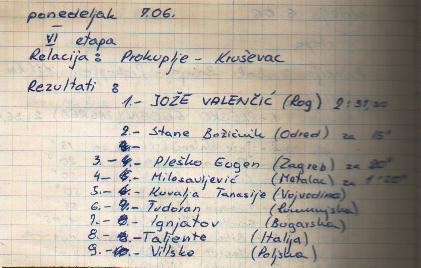 ponedeljak 7.06.
VI etapa
Relacija : Prokuplje - Kruševac
Rezultati :
1.- JOŽE VALENČIĆ (Rog) 2:37,20
2.- Stane Božičnik (Odred) za 15"
3.- Pleško Eugen (Zagreb) za 20"
4- Milosavljević (Metalac) za 1'20"
5.- Kuvalja Tanasije (Vojvodina)
6.- Tudoran (Rumunjska)
7.- Ignjatov (Bugarska)
8.- Taliente (Italija)
9.- Vilsko (Poljska)